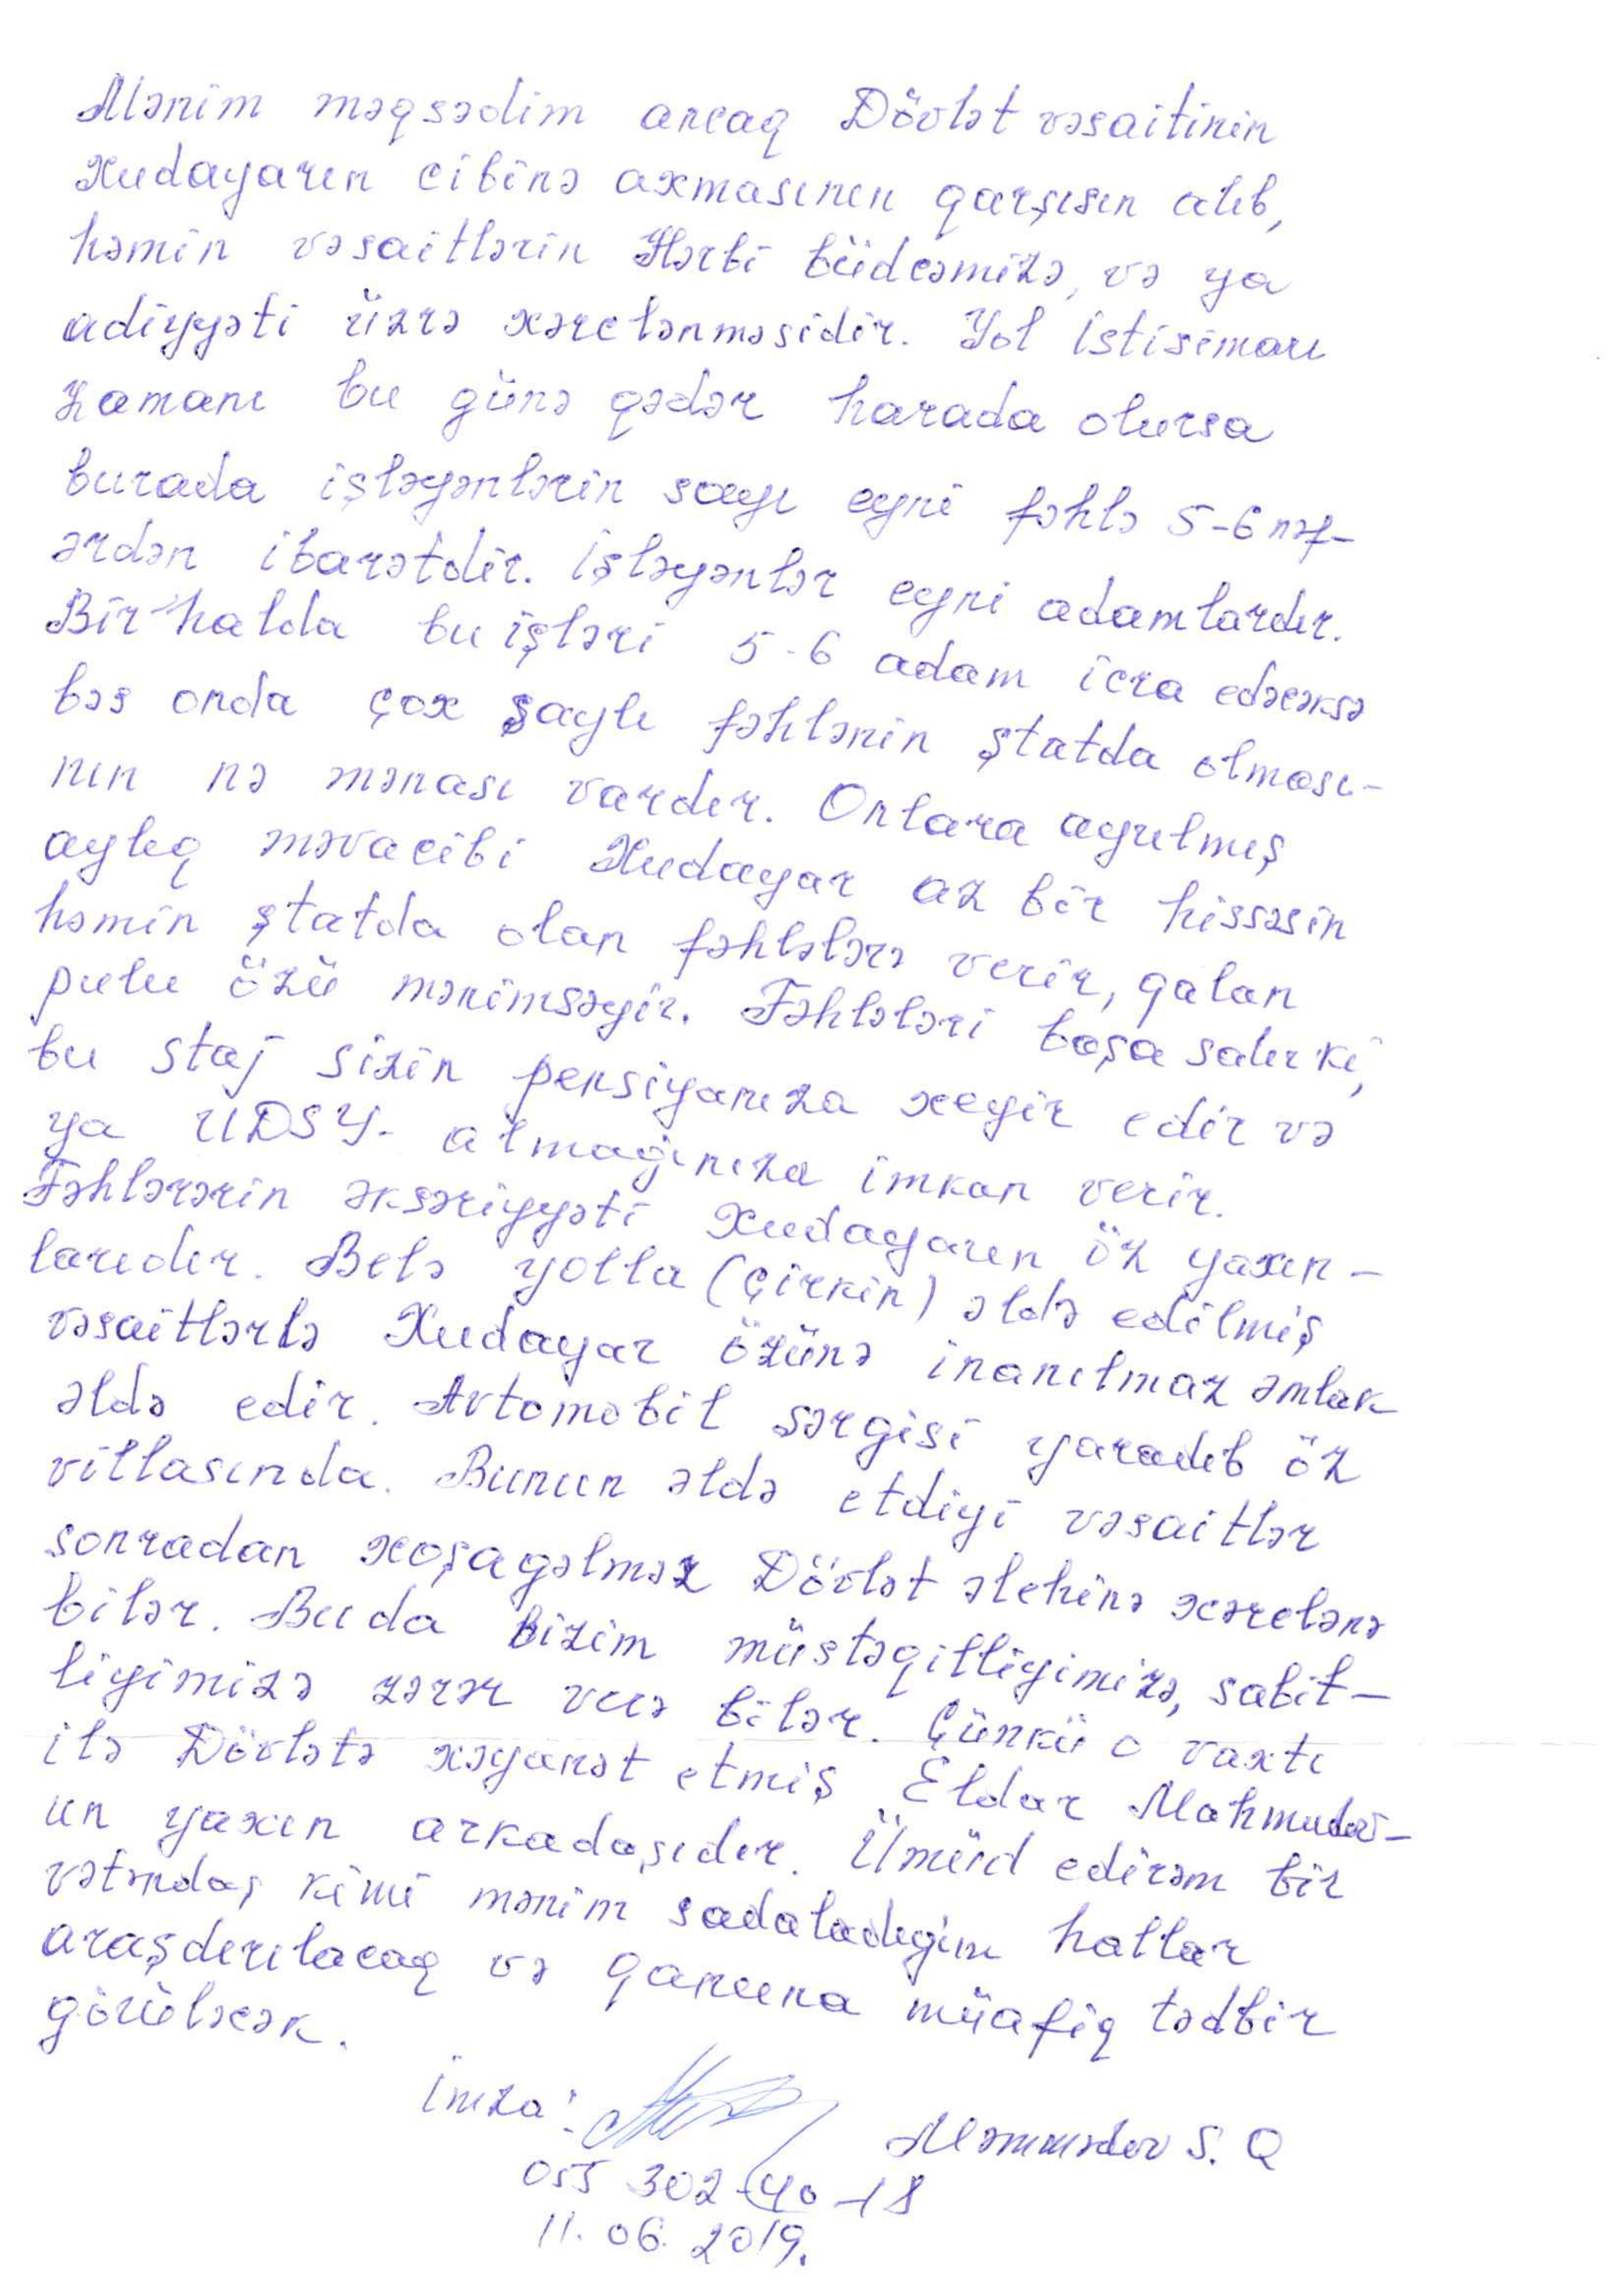 Mənim məqsədim ancaq Dövlət vəsaitinin
Xudayarın cibinə axmasının qarşısın alıb,
həmin vəsaitlərin Hərbi büdcəmizə, və ya
adiyyəti üzrə xərclənməsidir. Yol istisimarı
zamanı bu günə qədər harada olursa
burada işləyənlərin sayı eyni fəhlə 5-6 nəf-
ərdən ibarətdir. İşləyənlər eyni adamlardır.
Bir halda bu işləri 5-6 adam icra edəcəksə
bəs onda çox saylı fəhlənin ştatda olması-
nın nə mənası vardır. Onlara ayrılmış
aylıq məvacibi Xudayar az bir hissəsin
həmin ştatda olan fəhlələrə verir, qalan
pulu özü mənimsəyir. Fəhlələri başa salır ki,
bu staj sizin pensiyanıza xeyir edir və
ya ÜDSY- almağınıza imkan verir.
Fəhlərərin əksəriyyəti Xudayarın öz yaxın-
larıdır. Belə yolla (çirkin) əldə edilmiş
vəsaitlərlə Xudayar özünə inanılmaz əmlak
əldə edir. Avtomobil sərgisi yaradıb öz
villasında. Bunun əldə etdiyi vəsaitlər
sonradan xoşagəlməz Dövlət əlehinə xərclənə
bilər. Bu da bizim müstəqilliyimizə, sabit-
liyimizə zərər verə bilər. Çünkü o vaxtı
ilə Dövlətə xəyanət etmiş Eldar Mahmudov-
un yaxın arkadaşıdır. Ümüid edirəm bir
vətəndaş kimi mənim sadaladığım hallar
araşdırılacaq və qanuna müafiq tədbir
görüləcək.
İmza:
Məmmədov S. Q
055 302-40-18
11. 06. 2019.